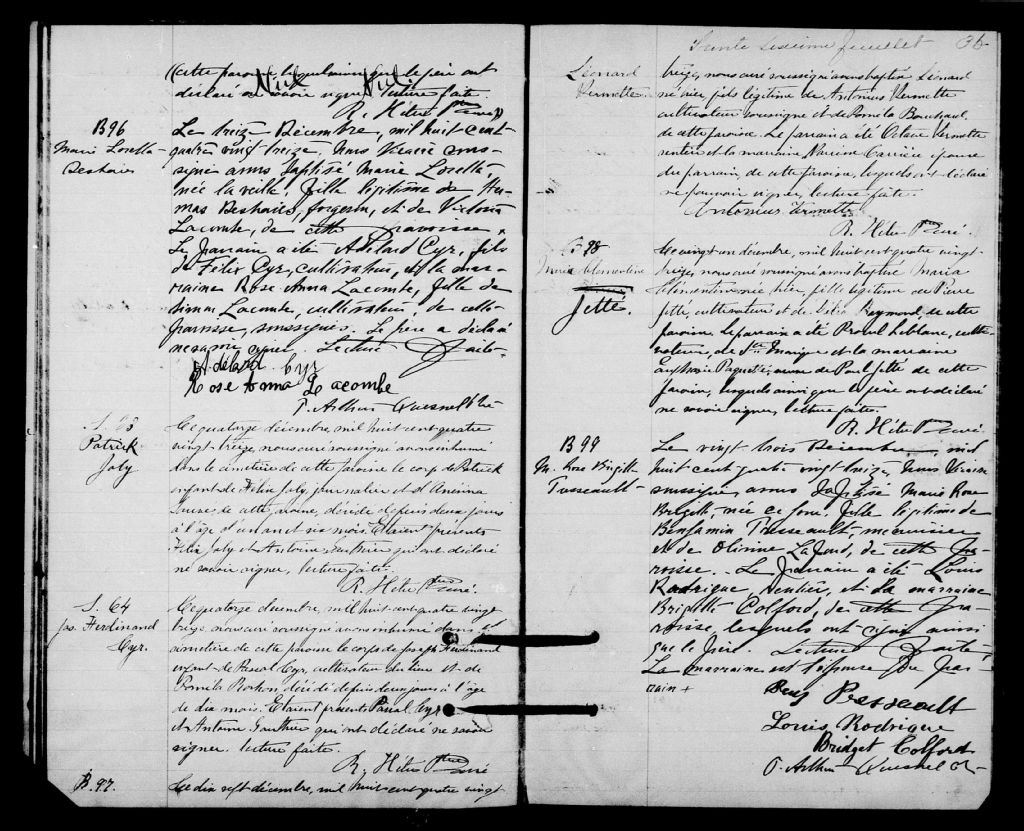 cette paroisse lesquels ainsi que le père ont
déclaré ne savoir signer lecture faite.
Nul Nul
R. Hétu Ptre Curé
B96
Marie Loretta
Deshaies
Le treize Décembre, mil huit cent
quatre vingt treize, Nous Vicaire sous-
signé avons baptisé Marie Loretta,
née la veille, fille légitime de Hor-
mas Deshaies, forgeron, et de Victoria
Lacombe, de cette paroisse.
Le parrain a été Adélard Cyr, fils
de Félix Cyr, cultivateur, et la mar-
raine Rose Anna Lacombe, fille de
Lacombe, cultivateur, de cette
paroisse, soussignés. Le père a déclaré
ne savoir signer. Lecture faite.
Adélard Cyr
Rose Anna Lacombe
P. Arthur Quesnel Ptre
S. 63
Patrick
Joly
Le quatorze décembre, mil huit cent quatre
vingt treize, nous curé soussigné avons inhumé
dans le cimetière de cette paroisse le corps de Patrick
enfant de Félix Joly, journalier et d'
de cette paroisse, décédé depuis deux jours
à l'âge d'un an et six mois. Etaient présents
Félix Joly et Antoine Gauthier qui ont déclaré
ne savoir signer, lecture faite.
R. Hétu Ptre Curé.
S. 64
Jos. Ferdinand
Cyr.
Le quatorze décembre, mil huit cent quatre vingt
treize, nous curé soussigné avons inhumé dans le
cimetière de cette paroisse le corps de Joseph Ferdinand
enfant de Pascal Cyr, cultivateur du lieu et de
Pomela décédé depuis deux jours à l'âge
de dix mois. Etaient présents Pascal Cyr
et Antoine Gauthier qui ont déclaré ne savoir
signer. lecture faite.
R. Hétu Ptre Curé
B. 97.
Le dix sept décembre, mil huit cent quatre vingt
Trente Sixième feuillet 36
Léonard
Vermette.
treize, nous curé soussigné avons baptisé Léonard
né hier, fils légitime de Antonius Vermette
cultivateur soussigné et de Pomela Bouchard
de cette paroisse. Le parrain a été Octave Vermette
rentier et la marraine, Narcisse Carrière épouse
du parrain, de cette paroisse, lesquels ont déclaré
ne pouvoir signer, lecture faite.
Antonius Vermette
R. Hétu Ptre Curé.
B. 98
Maria Clémentine
Jetté.
Le vingt un décembre, mil huit cent quatre vingt
treize, nous curé soussigné avons baptisé Maria
Clémentine née hier, fille légitime de Pierre
Jetté, cultivateur et de Délia Raymond, de cette
paroisse. Le parrain a été Leblanc, culti-
vateur, de et la marraine
Paquette, femme de Paul Jetté de cette
paroisse, lesquels ainsi que le père ont déclaré
ne savoir signer, lecture faite.
R. Hétu Ptre Curé.
B 99
M. Rose Brigitte
Tresseault
Le vingt trois Décembre, mil
huit cent quatre vingt treize, Nous Vicaire
soussigné, avons baptisé Marie Rose
Brigitte, née ce jour, fille légitime de
Benjamin Tresseault,
et de Olivine Lafond, de cette pa-
roisse. Le parrain a été Louis
Rodrigue, rentier, et la marraine
Brigitte Colford, de cette pa-
roisse, lesquels ont signé ainsi
que le père. Lecture faite.
La marraine est l'épouse du par-
rain +
Benj Tresseault
Louis Rodrigue
Bridget Colford
P. Arthur Quesnel Ptre